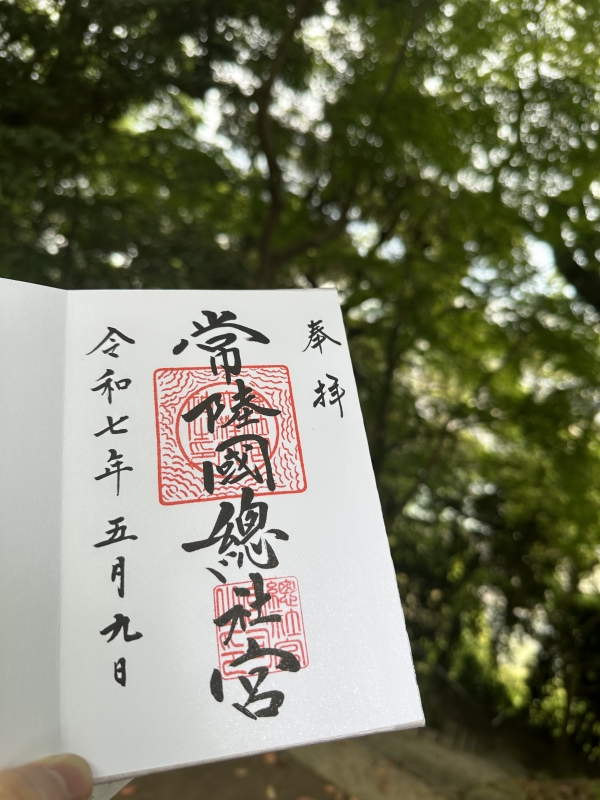 奉拝
常陸國總社宮
令和七年五月九日